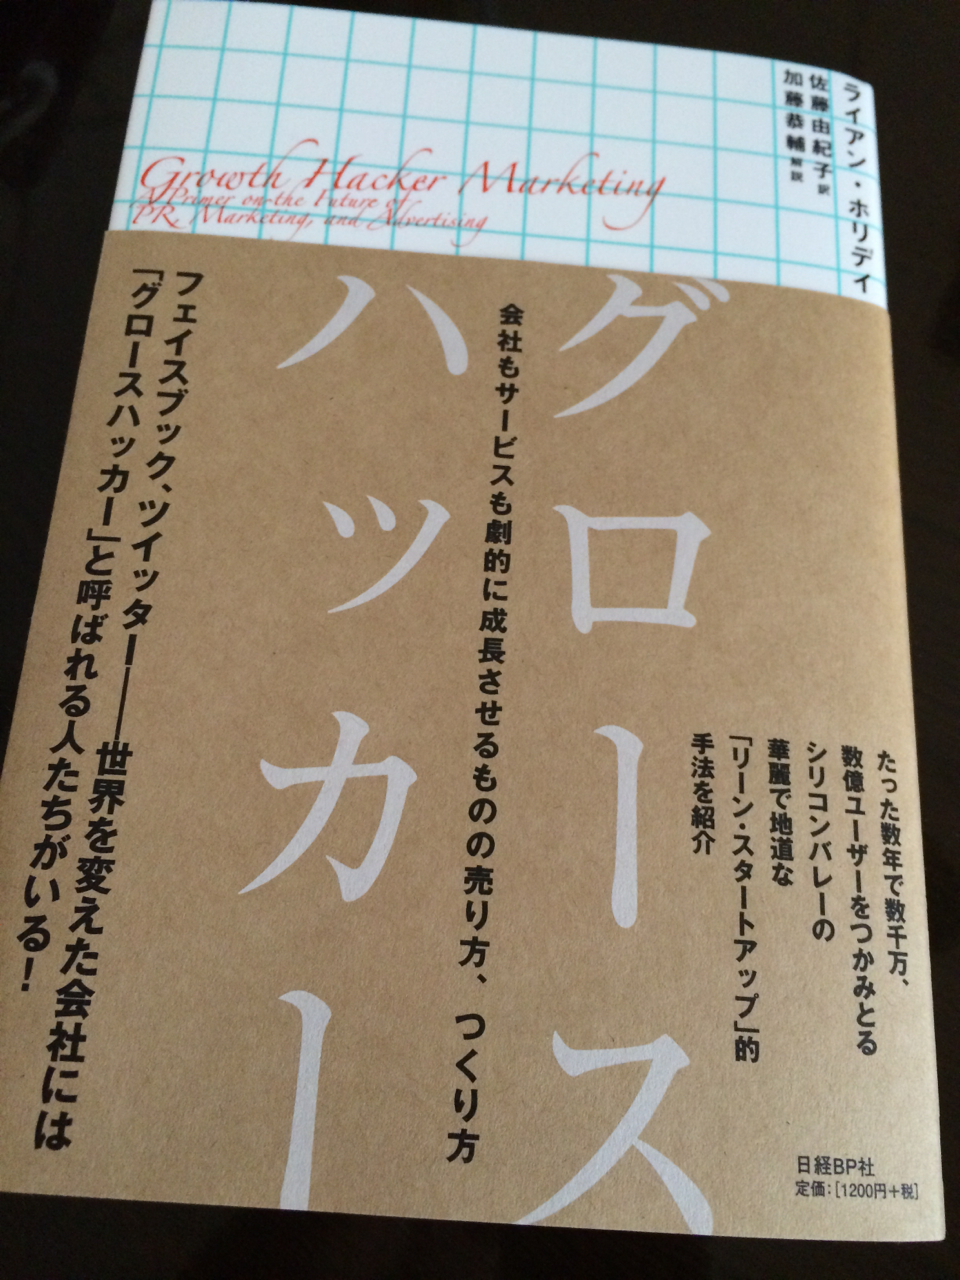 ライアン・ホリデイ
佐藤由紀子 訳
加藤恭輔 解説
Growth Hacker Marketing
A Primer on the Future of
PR, Marketing, and Advertising
たった数年で数千万、
数億ユーザーをつかみとる
シリコンバレーの
華麗で地道な
「リーン・スタートアップ」的
手法を紹介
グロース
会社もサービスも劇的に成長させるものの売り方、つくり方
ハッカー
フェイスブック、ツイッター――世界を変えた会社には
「グロースハッカー」と呼ばれる人たちがいる!
日経BP社
定価:[1200円+税]